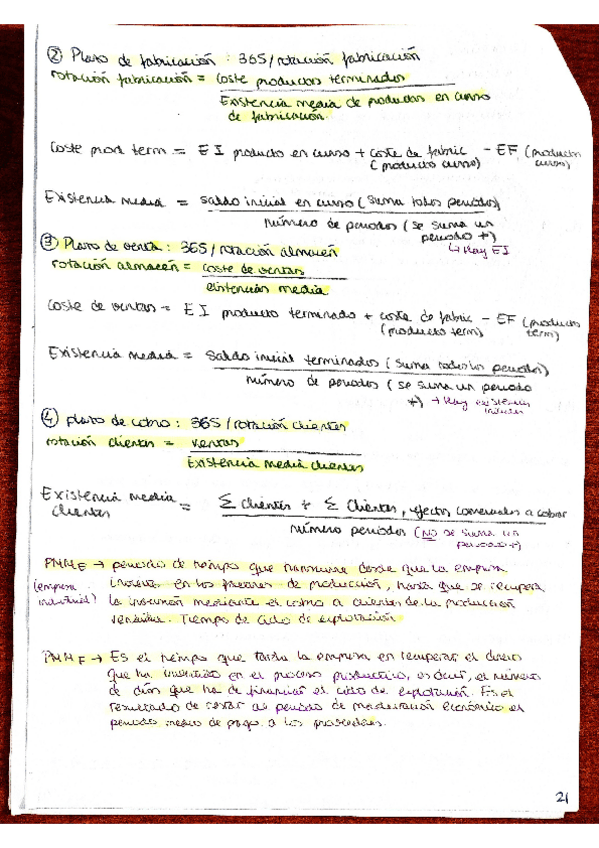 ② Plazo de fabricación : 365/rotación fabricación
rotación fabricación = coste productos terminados
Existencia media de productos en curso
de fabricación.
Coste prod term = EI producto en curso + coste de fabric - EF (productos
(producto curso) curso)
Existencia media = saldo inicial en curso (suma todos periodos)
número de periodos (se suma un
periodo +)
↳ Hay EI
③ Plazo de venta : 365/rotación almacén
rotación almacén = coste de ventas
existencias media
Coste de ventas = EI producto terminado + coste de fabric - EF (productos
(producto term) term)
Existencia media = Saldo inicial terminados (suma todos los periodos)
número de periodos (se suma un periodo
+) → Hay existencias
iniciales
④ plazo de cobro : 365/rotación clientes
rotación clientes = ventas
Existencia media clientes
Existencia media = Σ clientes + Σ clientes, efectos comerciales a cobrar
clientes
número periodos (NO se suma un
periodo +)
PMME → periodo de tiempo que transcurre desde que la empresa
(empresa invierte en los factores de producción, hasta que se recupera
industrial) la inversión mediante el cobro a clientes de la producción
vendida. Tiempo de ciclo de explotación
PMMF → Es el tiempo que tarda la empresa en recuperar el dinero
que ha invertido en el proceso productivo, es decir, el número
de días que ha de financiar el ciclo de explotación. Es el
resultado de restar al periodo de maduración económico el
periodo medio de pago a los proveedores.
21